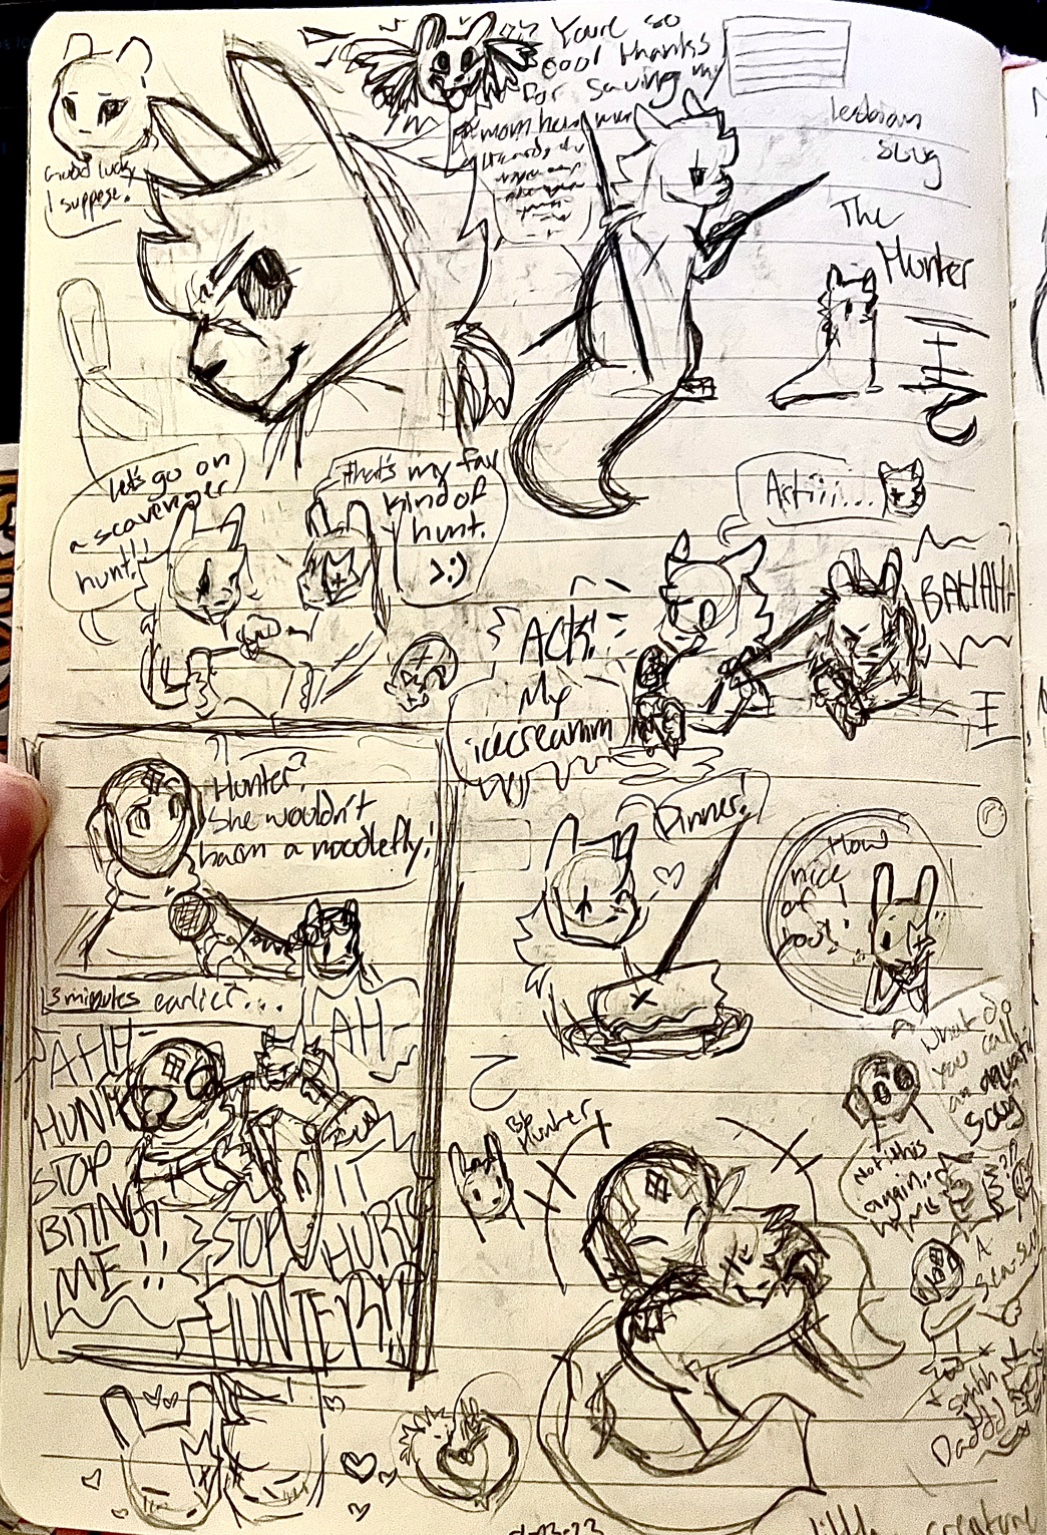 Good luck,
I suppose.
You're so
cool thanks
for saving my
mom
lesbian
slug
The
Hunter
Let's go on
a scavenger
hunt!!
that's my fav
kind of
hunt.
>:)
Artiii...
BAHAHA
ACK!
My
icecreamm
Hunter?
She wouldn't
harm a noodlefly!
3 minutes earlier...
AHH-
HUNTER
STOP
BITING
ME!!
AH-
IT
STOP HURTS
HUNTERRR
Dinner!
How
nice
of
you!
BB
Hunter
What do
you call
an aquatic
scug
Not this
again..
A
sea-slug
shhh
Daddd
little creature